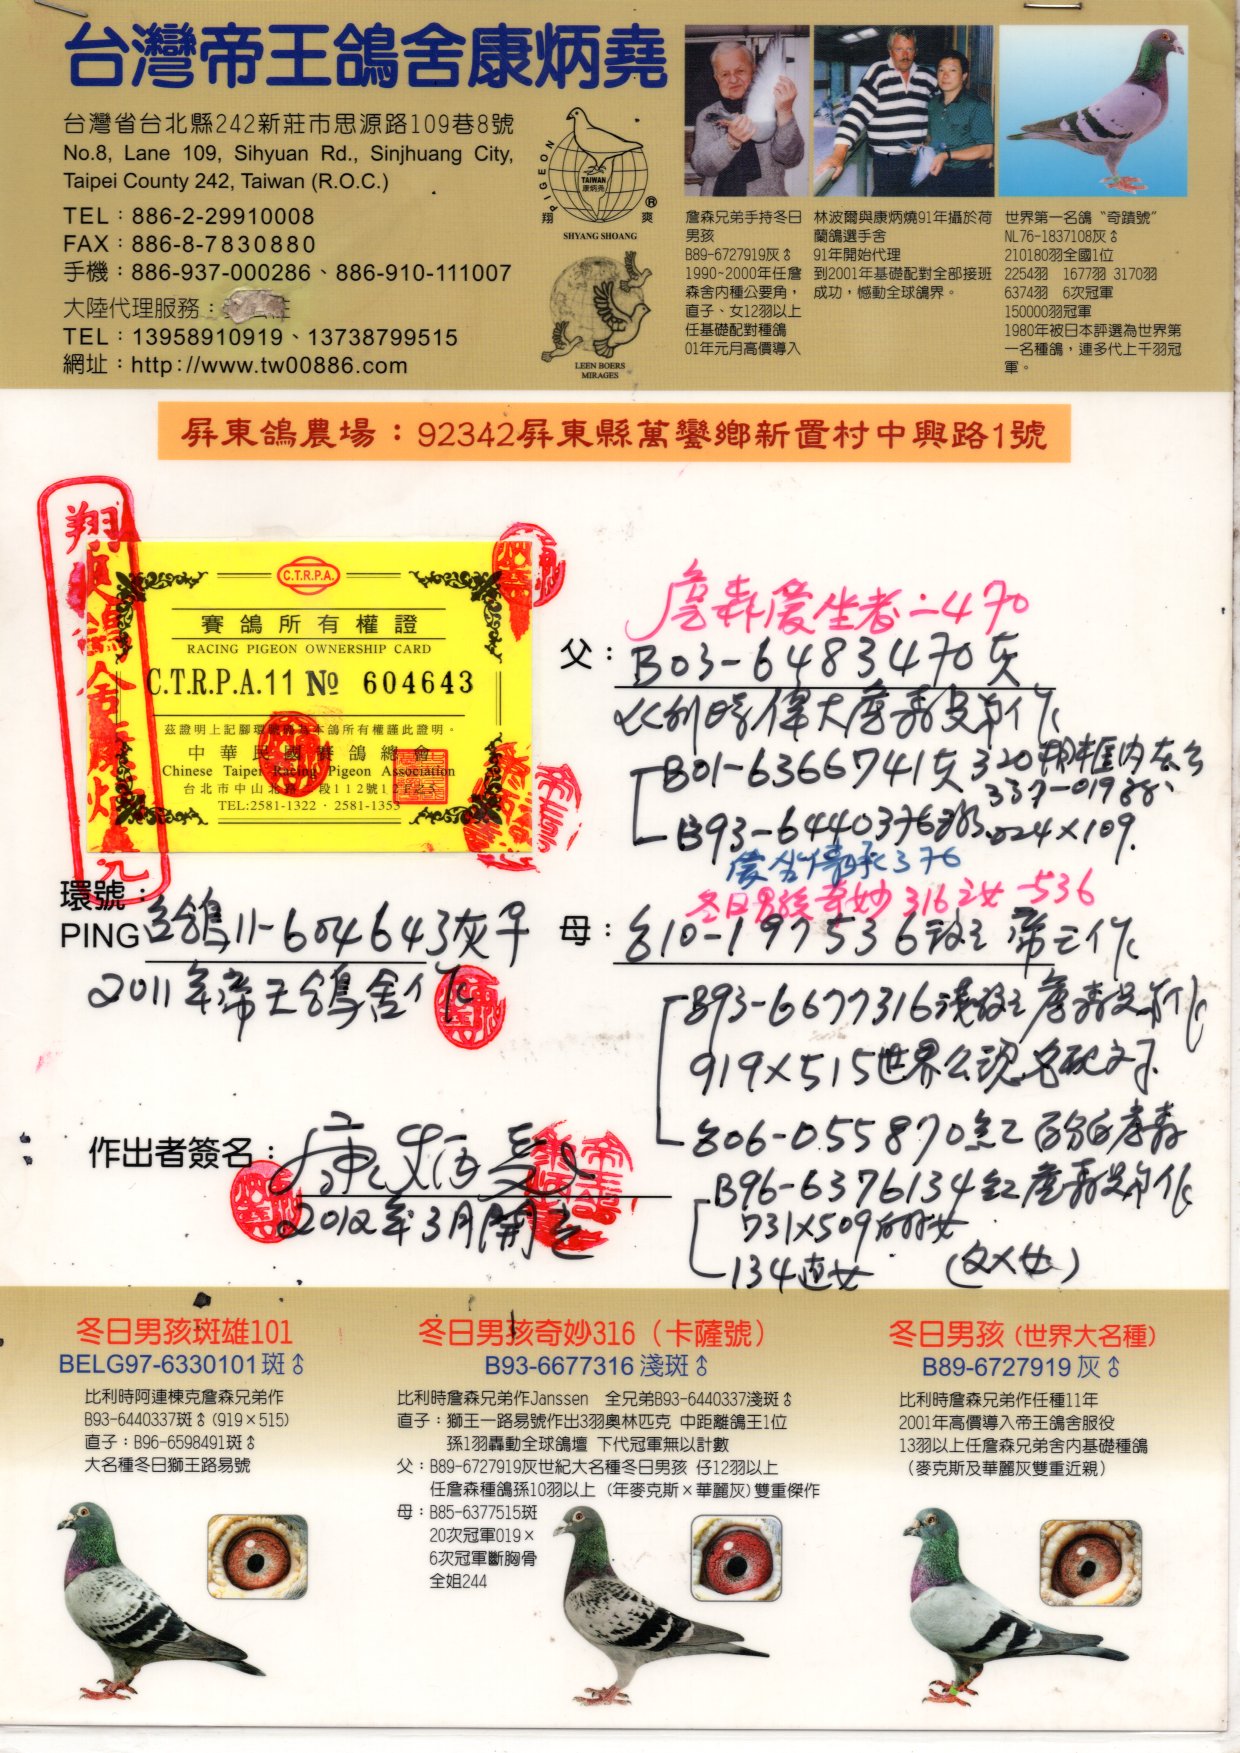 台灣帝王鴿舍康炳堯
台灣省台北縣242新莊市思源路109巷8號
No.8, Lane 109, Sihyuan Rd., Sinjhuang City,
Taipei County 242, Taiwan (R.O.C.)
TEL：886-2-29910008
FAX：886-8-7830880
手機：886-937-000286、886-910-111007
大陸代理服務：
TEL：13958910919、13738799515
網址：http://www.tw00886.com
PIGEON
TAIWAN
康炳堯
翔 爽
®
SHYANG SHOANG
LEEN BOERS
MIRAGES
詹森兄弟手持冬日
男孩
B89-6727919灰♂
1990~2000年任詹
森舍內種公要角，
直子、女12羽以上
任基礎配對種鴿
01年元月高價導入
林波爾與康炳燒91年攝於荷
蘭鴿選手舍
91年開始代理
到2001年基礎配對全部接班
成功，憾動全球鴿界。
世界第一名鴿“奇蹟號”
NL76-1837108灰♂
210180羽全國1位
2254羽 1677羽 3170羽
6374羽 6次冠軍
150000羽冠軍
1980年被日本評選為世界第
一名種鴿，連多代上千羽冠
軍。
屏東鴿農場：92342屏東縣萬巒鄉新置村中興路1號
C.T.R.P.A.
賽鴿所有權證
RACING PIGEON OWNERSHIP CARD
C.T.R.P.A.11 № 604643
茲證明上記腳環號碼為本鴿所有權謹此證明。
中華民國賽鴿總會
Chinese Taipei Racing Pigeon Association
台北市中山北路二段112號12F之5
TEL:2581-1322．2581-1353
詹森愛生者二470
父：B03-6483470灰
比利時偉大詹森兄弟作
B01-6366741灰
B93-6440376
024×109
376
冬日男孩奇妙316之女-536
環號：
PING 台鴿11-604643灰平
2011年帝王鴿舍作
母：台10-197536斑 帝王作
B93-6677316淺斑 詹森兄弟作
919×515世界公認名配之子
台06-055870紅
B96-6376134紅 詹森兄弟作
731×509
134直女 (父×女)
作出者簽名：康炳堯
2012年3月開立
冬日男孩斑雄101
BELG97-6330101斑♂
比利時阿連棟克詹森兄弟作
B93-6440337斑♂(919×515)
直子：B96-6598491斑♂
大名種冬日獅王路易號
冬日男孩奇妙316（卡薩號）
B93-6677316淺斑♂
比利時詹森兄弟作Janssen 全兄弟B93-6440337淺斑♂
直子：獅王一路易號作出3羽奧林匹克 中距離鴿王1位
孫1羽轟動全球鴿壇 下代冠軍無以計數
父：B89-6727919灰世紀大名種冬日男孩 仔12羽以上
任詹森種鴿孫10羽以上（年麥克斯×華麗灰）雙重傑作
母：B85-6377515斑
20次冠軍019×
6次冠軍斷胸骨
全姐244
冬日男孩（世界大名種）
B89-6727919灰♂
比利時詹森兄弟作任種11年
2001年高價導入帝王鴿舍服役
13羽以上任詹森兄弟舍內基礎種鴿
（麥克斯及華麗灰雙重近親）